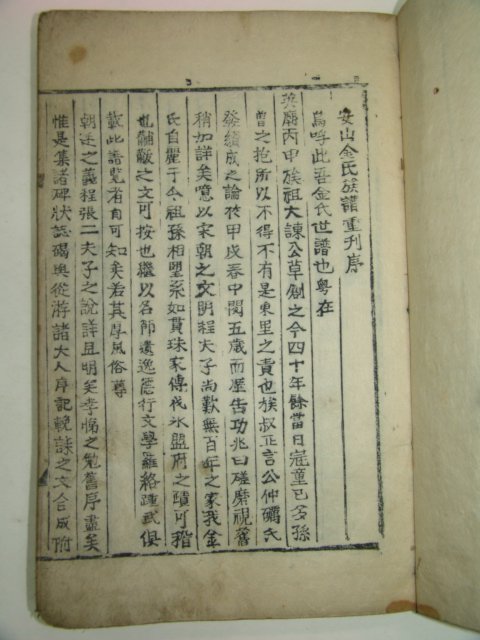 安山金氏族譜重刊序
嗚呼此吾金氏世譜也粤在
英廟丙甲族祖大諫公草剏之今四十年餘當日冠童已多孫
曾之抱所以不得不有是東里之責也族叔正言公仲礪氏
發續成之論於甲戌春中閱五歲而屋告功兆曰嗟席視舊
稍加詳矣噫以宋朝之文明程夫子尚歎無百年之家我金
氏自麗于今祖孫相望系如貫珠家傳伐氷盟府之蹟可稽
也黼黻之文可按也繼以名節遺逸薦行文學羅絡踵武俱
載此譜覽者自可知矣若其厚風俗尊
朝廷之義程張二夫子之說詳且明矣孝悌之勉舊序盡矣
惟是集諸碑狀誌碣與從游諸大人序記輓誄之文合成附